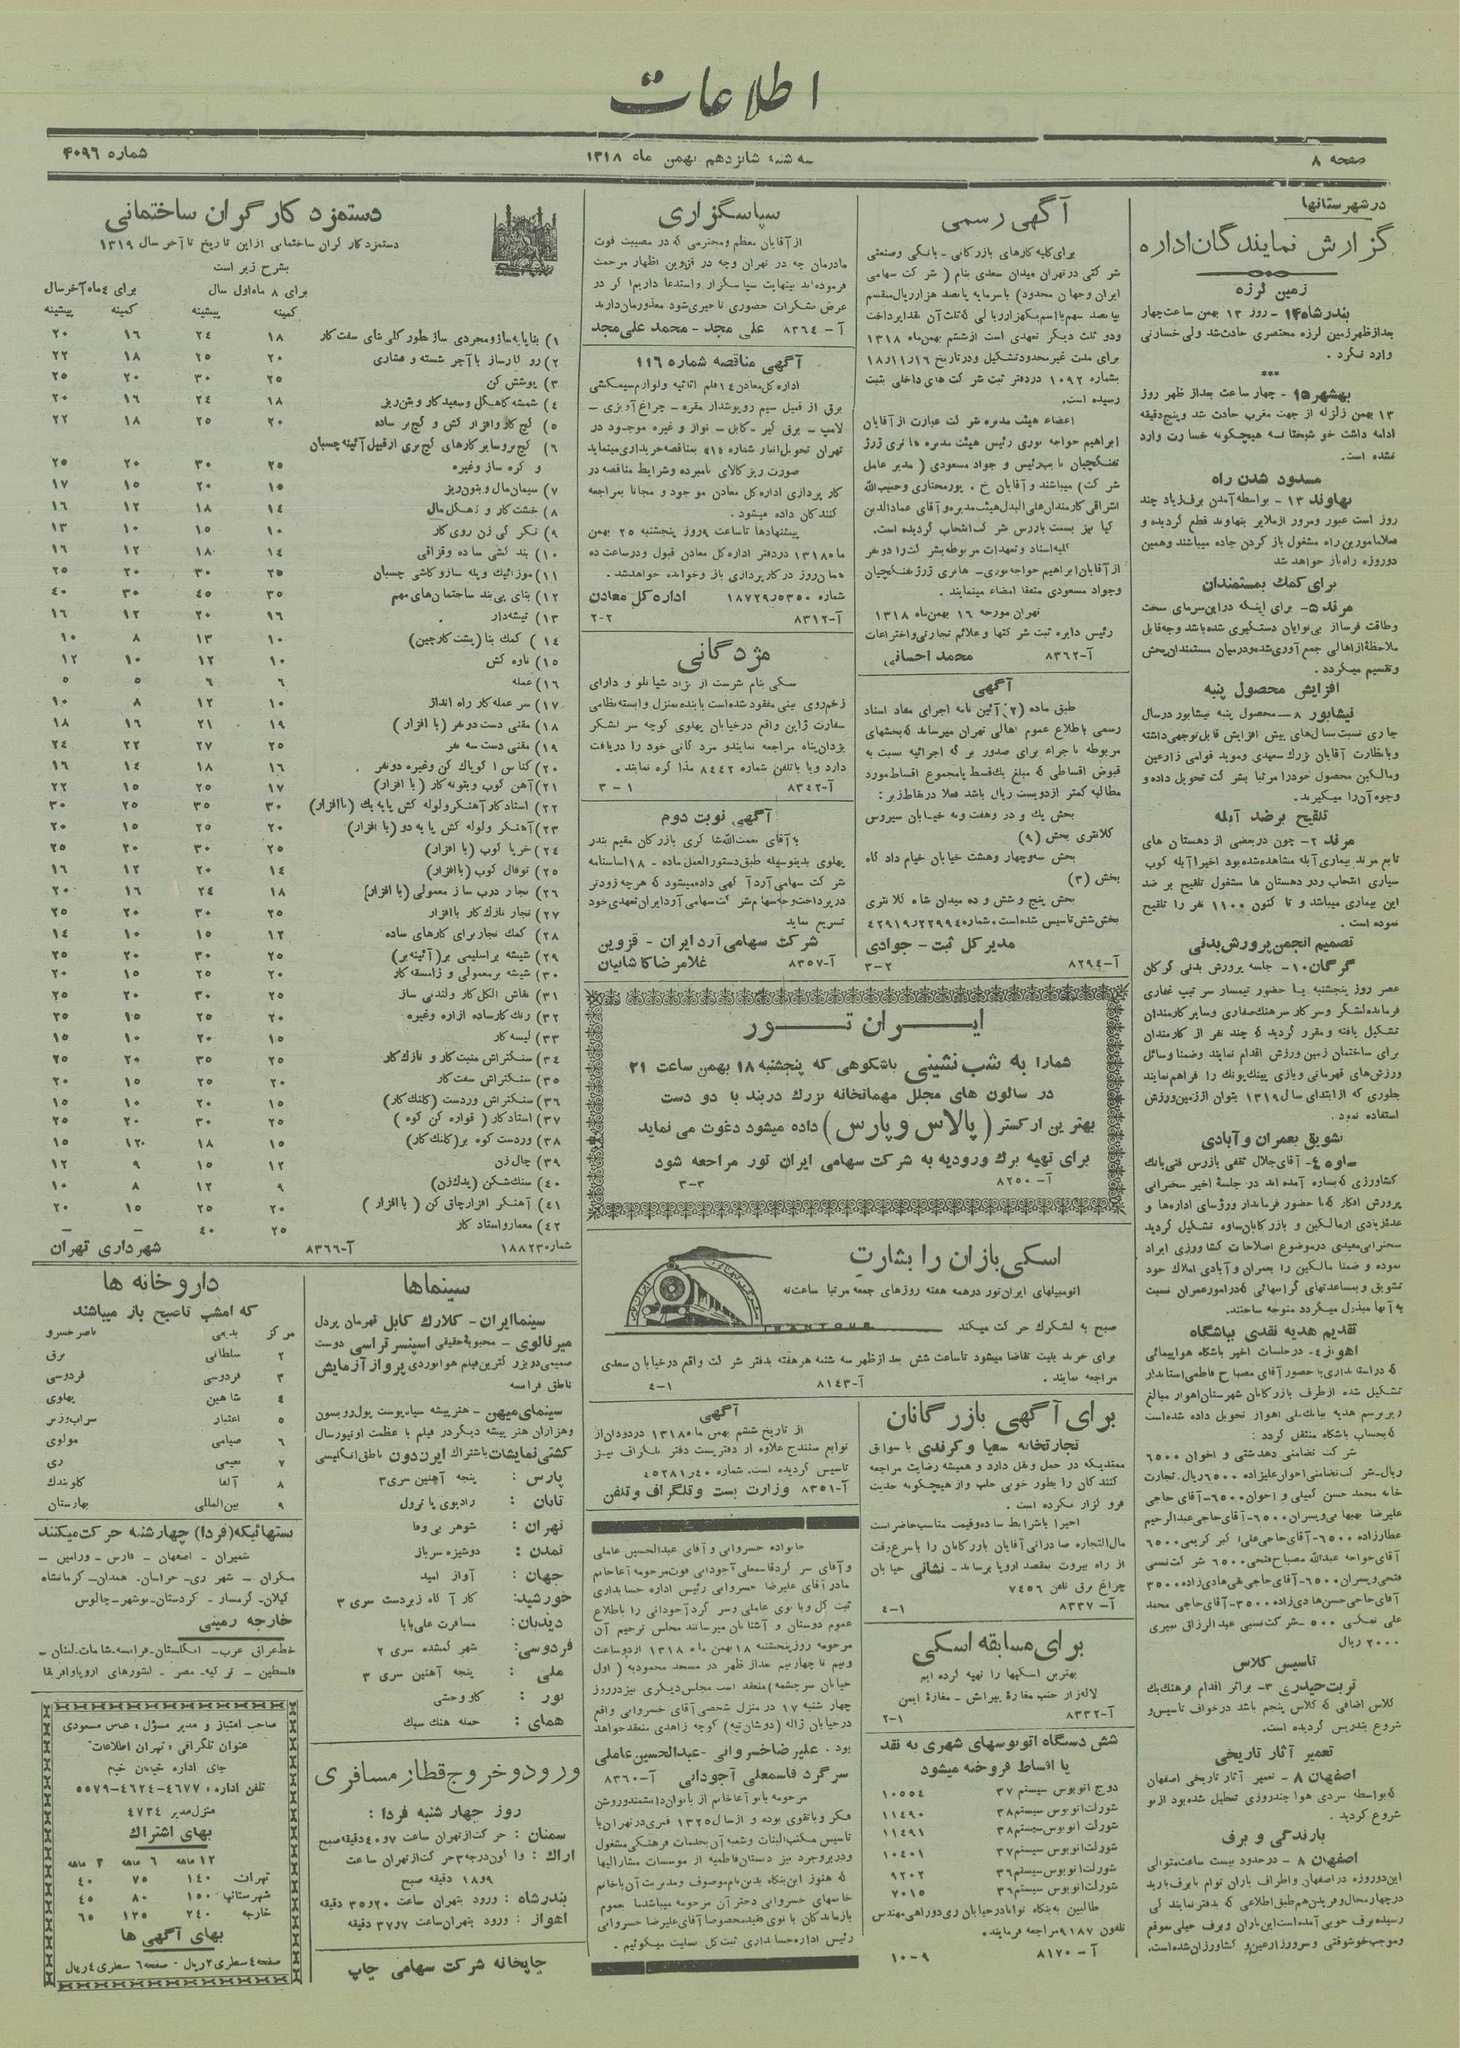 اطلاعات
صفحه ۸
سه شنبه شانزدهم بهمن ماه ۱۳۱۸
شماره ۴۰۹۶
در شهرستانها
گزارش نمایندگان اداره
زمین لرزه
بندرشاه ۱۴ - روز ۱۳ بهمن ساعت چهار
بعدازظهر زمین لرزه مختصری حادث شد ولی خسارتی
وارد نکرد .
***
بهشهر ۱۵ - چهار ساعت بعداز ظهر روز
۱۳ بهمن زلزله از جهت مغرب حادث شد و پنج دقیقه
ادامه داشت خوشبختانه هیچگونه خسارت وارد
نشده است .
مسدود شدن راه
نهاوند ۱۳ - بواسطه آمدن برف زیاد چند
روز است عبور و مرور از ملایر بنهاوند قطع گردیده و
فعلا مامورین راه مشغول باز کردن جاده میباشند و همین
دو روزه راه باز خواهد شد
برای کمک بمستمندان
مرند ۵ - برای اینکه در این سرمای سخت
و طاقت فرسا از بی نوایان دستگیری شده باشد وجه قابل
ملاحظه از اهالی جمع آوری شده و در میان مستمندان پخش
و تقسیم میگردد .
افزایش محصول پنبه
نیشابور ۸ - محصول پنبه نیشابور در سال
جاری نسبت سال های پیش افزایش قابل توجهی داشته
و بانظارت آقایان بزرگ سعیدی و موید قوامی زارعین
و مالکین محصول خود را مرتبا بشرکت تحویل داده و
وجوه آن را میگیرند .
تلقیح بر ضد آبله
مرند ۲ - چون در بعضی از دهستان های
تابع مرند بیماری آبله مشاهده شده بود اخیرا آبله کوب
سیاری انتخاب و در دهستان ها مشغول تلقیح بر ضد
این بیماری میباشد و تا کنون ۱۱۰۰ نفر را تلقیح
نموده است .
تصمیم انجمن پرورش بدنی
گرگان ۱۰ - جلسه پرورش بدنی گرگان
عصر روز پنجشنبه با حضور تیمسار سرتیپ غفاری
فرمانده لشگر و سرکار سرهنگ صفاری و سایر کارمندان
تشکیل یافته و مقرر گردید که چند نفر از کارمندان
برای ساختمان زمین ورزش اقدام نمایند و ضمنا وسائل
ورزش های قهرمانی و بازی پینگ پونگ را فراهم نمایند
بطوری که از ابتدای سال ۱۳۱۹ بتوان از زمین ورزش
استفاده نمود .
تشویق بعمران و آبادی
ساوه ۴ - آقای جلال ثقفی بازرس فنی بانک
کشاورزی که بساوه آمده اند در جلسه اخیر سخنرانی
پرورش افکار که با حضور فرماندار و رؤسای اداره ها و
عده زیادی از مالکین و بازرگانان ساوه تشکیل گردید
سخنرانی مفیدی در موضوع اصلاحات کشاورزی ایراد
نموده و ضمنا مالکین را بعمران و آبادی املاک خود
تشویق و بمساعدتهای گرانبهائی که در امور عمران نسبت
به آنها مبذول میگردد متوجه ساختند .
تقدیم هدیه نقدی بباشگاه
اهواز ۴ - در جلسات اخیر باشگاه هواپیمائی
که در استانداری با حضور آقای مصباح فاطمی استاندار
تشکیل شده از طرف بازرگانان شهرستان اهواز مبالغ
زیر برسم هدیه ببانک ملی اهواز تحویل داده شده است
که بحساب باشگاه منتقل گردد :
شرکت تضامنی دهدشتی و اخوان ۶۵۰۰
ریال - شرکت تضامنی اخوان علیزاده ۶۵۰۰ ریال . تجارت
خانه محمد حسن کمپلی و اخوان ۶۵۰۰ - آقای حاجی
علیرضا بهبهانی و پسران ۶۵۰۰ - آقای حاجی عبدالرحیم
عطارزاده ۶۵۰۰ - آقای حاجی علی اکبر کریمی ۶۵۰۰
آقای خواجه عبدالله مصباح فتحی ۶۵۰۰ شرکت نسبی
فتحی و پسران ۶۵۰۰ - آقای حاجی تقی هادی زاده ۳۵۰۰
آقای حاجی حسن هادی زاده ۳۵۰۰ - آقای حاجی محمد
علی نمکی ۵۰۰ - شرکت نسبی عبدالرزاق نمیری
۲۰۰۰ ریال
تاسیس کلاس
تربت حیدری ۳ - براثر اقدام فرهنگ یک
کلاس اضافی که کلاس پنجم باشد در خواف تاسیس و
شروع بتدریس گردیده است .
تعمیر آثار تاریخی
اصفهان ۸ - تعمیر آثار تاریخی اصفهان
که بواسطه سردی هوا چند روزی تعطیل شده بود از نو
شروع گردید .
بارندگی و برف
اصفهان ۸ - در حدود بیست ساعت متوالی
این دو روزه در اصفهان و اطراف باران توام با برف بارید
در چهارمحال و فریدن هم طبق اطلاعی که بدفتر نمایندگی
رسیده برف خوبی آمده است این باران و برف خیلی بموقع
و موجب خوشوقتی و سرور زارعین و کشاورزان شده است .
آگهی رسمی
برای کلیه کارهای بازرگانی - بانکی و صنعتی
شرکتی در تهران میدان سعدی بنام ( شرکت سهامی
ایران و جهان محدود ) با سرمایه پانصد هزار ریال منقسم
بپانصد سهم با اسم یکهزار ریالی که ثلث آن نقدا پرداخت
و دو ثلث دیگر تعهدی است از ششم بهمن ماه ۱۳۱۸
برای مدت غیر محدود تشکیل و در تاریخ ۱۶ر۱۱ر۱۸
بشماره ۱۰۹۲ در دفتر ثبت شرکت های داخلی بثبت
رسیده است .
اعضاء هیئت مدیره شرکت عبارت از آقایان
ابراهیم خواجه نوری رئیس هیئت مدیره هانری ژرژ
تفنگچیان نایب رئیس و جواد مسعودی ( مدیر عامل
شرکت ) میباشند و آقایان خ . پورمختاری و حبیب الله
اشراقی کارمندان علی البدل هیئت مدیره و آقای عمادالدین
کیا نیز بسمت بازرس شرکت انتخاب گردیده است .
کلیه اسناد و تعهدات مربوطه بشرکت را دو نفر
از آقایان ابراهیم خواجه نوری - هانری ژرژ تفنگچیان
و جواد مسعودی متفقا امضاء مینمایند .
تهران مورخه ۱۶ بهمن ماه ۱۳۱۸
رئیس دایره ثبت شرکتها و علائم تجارتی و اختراعات
آ-۸۳۶۲ محمد احسانی
آگهی
طبق ماده (۲) آئین نامه اجرای مفاد اسناد
رسمی باطلاع عموم اهالی تهران میرساند که بخشهای
مربوطه باجراء برای صدور برگ اجرائیه نسبت به
قبوض اقساطی که مبلغ یک قسط یا مجموع اقساط مورد
مطالبه کمتر از دویست ریال باشد فعلا در نقاط زیر :
بخش یک و در وهفت ونه خیابان سیروس
کلانتری بخش (۹)
بخش سه و چهار و هشت خیابان خیام دادگاه
بخش (۳)
بخش پنج و شش و ده میدان شاه کلانتری
بخش شش تاسیس شده است . شماره ۲۲۹۹۴ر۴۲۹۱۹
مدیر کل ثبت - جوادی
آ-۸۲۹۴ ۲-۳
سپاسگزاری
از آقایان معظم و محترمی که در مصیبت فوت
مادرمان چه در تهران و چه در قزوین اظهار مرحمت
فرموده اند بینهایت سپاسگزار و استدعا داریم اگر در
عرض تشکرات حضوری تاخیری شود معذورمان دارند
آ-۸۳۶۴ علی مجد - محمد علی مجد
آگهی مناقصه شماره ۱۱۶
اداره کل معادن ۱۴ قلم اثاثیه و لوازم سیمکشی
برق از قبیل سیم روپوشدار مقره - چراغ آویزی -
لامپ - برق گیر - کابل - نوار و غیره موجود در
تهران تحویل انبار شماره ۵۱۵ بمناقصه خریداری مینماید
صورت ریز کالای نامبرده و شرایط مناقصه در
کار پردازی اداره کل معادن موجود و مجانا بمراجعه
کنندگان داده میشود .
پیشنهادها تا ساعت ۹ روز پنجشنبه ۲۵ بهمن
ماه ۱۳۱۸ در دفتر اداره کل معادن قبول و در ساعت ده
همان روز در کارپردازی باز و خوانده خواهد شد .
شماره ۵۳۵۰ر۱۸۷۲۹ اداره کل معادن
آ-۸۳۱۲ ۲-۲
مژدگانی
سگی بنام شرست از نژاد شپانلو و دارای
زخم روی بینی مفقود شده است یابنده بمنزل وابسته نظامی
سفارت ژاپن واقع در خیابان پهلوی کوچه سرلشگر
یزدان پناه مراجعه نمایند و مژدگانی خود را دریافت
دارد و یا با تلفن شماره ۸۴۴۲ مذاکره نمایند .
آ-۸۳۴۲ ۱-۳
آگهی نوبت دوم
به آقای نعمت الله شاکری بازرگان مقیم بندر
پهلوی بدینوسیله طبق دستورالعمل ماده - ۱۸ اساسنامه
شرکت سهامی آرد آگهی داده میشود که هرچه زودتر
در پرداخت وجه سهام شرکت سهامی آرد ایران تعهدی خود
تسریع نماید
شرکت سهامی آرد ایران - قزوین
آ-۸۳۵۷ غلامرضا کاشانیان
ایران تور
شمارا به شب نشینی باشکوهی که پنجشنبه ۱۸ بهمن ساعت ۲۱
در سالون های مجلل مهمانخانه بزرگ دربند با دو دست
بهترین ارکستر ( پالاس و پارس ) داده میشود دعوت می نماید
برای تهیه برگ ورودیه به شرکت سهامی ایران تور مراجعه شود
آ-۸۲۵۰ ۳-۳
اسکی بازان را بشارت
اتومبیلهای ایران تور در همه هفته روزهای جمعه مرتبا ساعت نه
صبح به لشکرک حرکت میکند
IRANTOUR
برای خرید بلیت تقاضا میشود تا ساعت شش بعدازظهر سه شنبه هر هفته بدفتر شرکت واقع در خیابان سعدی
مراجعه نمایند . آ-۸۱۴۳ ۱-۴
برای آگهی بازرگانان
تجارتخانه سعیا و کرندی با سوابق
ممتدیکه در حمل و نقل دارد و همیشه رضایت مراجعه
کنندگان را بطور خوبی جلب و از هیچگونه خدمت
فروگزار نکرده است .
اخیرا باشرایط ساده و قیمت مناسب حاضر است
مال التجاره صادراتی آقایان بازرگانان را باسرع وقت
از راه بیروت بمقصد اروپا برساند - نشانی خیابان
چراغ برق تلفن ۷۴۵۶
آ-۸۳۳۷ ۱-۴
برای مسابقه اسکی
بهترین اسکیها را تهیه کرده ایم
لاله زار جنب مغازه پیرایش - مغازه ایمن
آ-۸۳۳۲ ۱-۲
شش دستگاه اتوبوسهای شهری به نقد
یا اقساط فروخته میشود
دوج اتوبوس سیستم ۳۷ ۱۰۵۵۴
شورلت اتوبوس سیستم ۳۸ ۱۱۴۹۰
شورلت اتوبوس سیستم ۳۸ ۱۱۴۹۱
شورلت اتوبوس سیستم ۳۷ ۱۰۴۰۱
شورلت اتوبوس سیستم ۳۶ ۹۲۰۲
شورلت اتوبوس سیستم ۳۶ ۷۰۱۵
طالبین به بنگاه توانا در خیابان ری دو راهی مهندس
تلفون ۹۱۸۷ مراجعه فرمایند .
آ-۸۱۷۰ ۹-۱۰
آگهی
از تاریخ ششم بهمن ماه ۱۳۱۸ در دودان از
توابع سنندج علاوه از دفتر پست دفتر تلگراف نیز
تاسیس گردیده است . شماره ۴۰ر۴۵۲۸۱
آ-۸۳۵۱ وزارت پست و تلگراف و تلفن
خانواده خسروانی و آقای عبدالحسین عاملی
و آقای سرگرد قاسمعلی آجودانی فوت مرحومه آغاخانم
مادر آقای علیرضا خسروانی رئیس اداره حسابداری
ثبت کل و بانوی عاملی و سرگرد آجودانی را باطلاع
عموم دوستان و آشنایان میرسانند مجلس ترحیم آن
مرحومه روز پنجشنبه ۱۸ بهمن ماه ۱۳۱۸ از دو ساعت
و نیم تا چهار نیم بعداز ظهر در مسجد محمودیه ( اول
خیابان سرچشمه ) منعقد است مجلس دیگری نیز در روز
چهار شنبه ۱۷ در منزل شخصی آقای خسروانی واقع
در خیابان ژاله ( دوشان تپه ) کوچه زاهدی منعقد خواهد
بود . علیرضا خسروانی - عبدالحسین عاملی
سرگرد قاسمعلی آجودانی آ-۸۳۶۰
مرحومه بانو آغاخانم از بانوان دانشمند و روشن
فکر و باتقوی بوده و از سال ۱۳۲۵ قمری در تهران با
تاسیس مکتب البنات و شعبه آن بخدمات فرهنگی مشغول
و در بروجرد نیز دبستان فاطمیه از موسسات مشارالیها
که هنوز این بنگاه بدین نام موصوف و مدیریت آن با خانم
خانمهای خسروانی دختر آن مرحومه میباشد ما عموم
بازماندگان بانوی فقید مخصوصا آقای علیرضا خسروانی
رئیس اداره حسابداری ثبت کل تسلیت میگوئیم .
دستمزد کارگران ساختمانی
دستمزد کارگران ساختمانی از این تاریخ تا آخر سال ۱۳۱۹
بشرح زیر است
برای ۸ ماه اول سال برای ۴ ماه آخر سال
کمینه بیشینه کمینه بیشینه
۱) بنا پایه ساز و مجردی ساز بطور کلی بنای سفت کار ۱۸ ۲۴ ۱۶ ۲۰
۲) روکارساز با آجر شسته و فشاری ۲۰ ۲۵ ۱۸ ۲۲
۳) پوشش کن ۲۵ ۳۰ ۲۰ ۲۵
۴) شمشه کاهگل و سفیدکار و بتن ریز ۱۸ ۲۴ ۱۶ ۲۰
۵) گچ کار و افزار کش و گچ بر ساده ۲۰ ۲۵ ۱۸ ۲۲
۶) گچ بر و سایر کارهای گچ بری از قبیل آئینه چسبان
و گره ساز و غیره ۲۵ ۳۰ ۲۰ ۲۵
۷) سیمان مال و بتون ریز ۱۵ ۲۰ ۱۵ ۱۷
۸) خشت کار و زهگل مال ۱۴ ۱۸ ۱۲ ۱۶
۹) تگرگی زن روی کار ۱۰ ۱۵ ۱۰ ۱۳
۱۰) بند کشی ساده و قزاقی ۱۴ ۱۸ ۱۲ ۱۶
۱۱) موزائیک و پله ساز و کاشی چسبان ۲۵ ۳۰ ۲۰ ۲۵
۱۲) بنای پی بند ساختمان های مهم ۳۵ ۴۵ ۳۰ ۴۰
۱۳) تیشه دار ۱۶ ۲۰ ۱۲ ۱۶
۱۴) کمک بنا (پشت کار چین) ۱۰ ۱۳ ۸ ۱۰
۱۵) ناوه کش ۱۰ ۱۲ ۱۰ ۱۲
۱۶) عمله ۶ ۶ ۵ ۵
۱۷) سر عمله کار راه انداز ۱۰ ۱۲ ۸ ۱۰
۱۸) مقنی دست دو نفر (با افزار) ۱۹ ۲۱ ۱۶ ۱۸
۱۹) مقنی دست سه نفر ۲۵ ۲۷ ۲۲ ۲۴
۲۰) کناس ( گوپاک کن و غیره دو نفر ۱۶ ۱۸ ۱۴ ۱۶
۲۱) آهن کوب و بتونه کار (با افزار) ۱۷ ۲۵ ۱۵ ۲۲
۲۲) استادکار آهنگر و لوله کش پایه یک (با افزار) ۳۰ ۳۵ ۲۵ ۳۰
۲۳) آهنگر و لوله کش پایه دو (با افزار) ۲۰ ۲۵ ۱۵ ۲۰
۲۴) خرپا کوب (با افزار) ۲۵ ۳۰ ۲۰ ۲۵
۲۵) توفال کوب (با افزار) ۱۴ ۲۰ ۱۲ ۱۶
۲۶) نجار درب ساز معمولی (با افزار) ۱۸ ۲۴ ۱۶ ۲۰
۲۷) نجار نازک کار با افزار ۲۵ ۳۰ ۲۰ ۲۵
۲۸) کمک نجار برای کارهای ساده ۱۲ ۱۵ ۱۰ ۱۴
۲۹) شیشه بر اسلیمی بر (آئینه بر) ۲۵ ۳۰ ۲۰ ۲۵
۳۰) شیشه بر معمولی و زامسقه کار ۲۰ ۲۵ ۱۵ ۲۰
۳۱) نقاش الکل کار و لندنی ساز ۲۵ ۳۰ ۲۰ ۲۵
۳۲) رنگ کار ساده ازاره و غیره ۲۰ ۲۵ ۱۵ ۲۵
۳۳) لیسه کار ۱۵ ۲۰ ۱۰ ۱۵
۳۴) سنگتراش منبت کار و نازک کار ۲۵ ۳۵ ۲۰ ۲۵
۳۵) سنگتراش سفت کار ۲۰ ۲۵ ۱۵ ۲۰
۳۶) سنگتراش وردست (کلنگ کار) ۱۵ ۲۰ ۱۰ ۱۵
۳۷) استادکار ( قواره کن کوه ) ۲۵ ۳۰ ۲۰ ۲۵
۳۸) وردست کوه بر (کلنگ کار) ۱۵ ۱۸ ۱۲ ۱۵
۳۹) چال زن ۱۲ ۱۵ ۹ ۱۲
۴۰) سنگ شکن (پدک زن) ۹ ۱۲ ۸ ۱۰
۴۱) آهنگر افزار چاق کن (با افزار) ۲۰ ۲۵ ۱۵ ۲۰
۴۲) معمار و استاد کار ۲۵ ۴۰ - -
شماره ۱۸۸۲۳ آ-۸۳۶۶ شهرداری تهران
سینماها
سینما ایران - کلارک گابل قهرمان پردل
میرنالوی - محبوبه حقیقی اسپنسر تراسی دوست
صمیمی در بزرگترین فیلم هوانوردی پرواز آزمایش
ناطق فرانسه
سینمای میهن - هنرپیشه سیاه پوست پول روبسون
و هزاران هنرپیشه دیگر در فیلم با عظمت اونیورسال
کشتی نمایشات باشتراک ایرن دون ناطق انگلیسی
پارس : پنجه آهنین سری ۳
تابان : رادیوی پاترول
تهران : شوهر بی وفا
تمدن : دوشیزه سرباز
جهان : آواز امید
خورشید : کارآگاه زبردست سری ۳
دیدبان : مسافرت علی بابا
فردوسی : شهر گمشده سری ۲
ملی : پنجه آهنین سری ۳
نور : گاو وحشی
همای : حمله هنگ سبک
ورود و خروج قطار مسافری
روز چهار شنبه فردا :
سمنان : حرکت از تهران ساعت ۷و۴۰ دقیقه صبح
اراک : واگون درجه ۳ حرکت از تهران ساعت
۹و۱۸ دقیقه صبح
بندرشاه : ورود بتهران ساعت ۲۰و۳۵ دقیقه
اهواز : ورود بتهران ساعت ۷و۳۷ دقیقه
چاپخانه شرکت سهامی چاپ
داروخانه ها
که امشب تا صبح باز میباشند
مرکز بدیعی ناصرخسرو
۲ سلطانی برق
۳ فردوسی فردوسی
۴ شاهین پهلوی
۵ اعتبار سراب وزیر
۶ صیامی مولوی
۷ نعیمی ری
۸ آلفا گاو بندک
۹ بین المللی بهارستان
پستهائیکه (فردا) چهارشنبه حرکت میکنند
شمیران - اصفهان - فارس - ورامین -
مکران - شهر ری - خراسان - همدان - کرمانشاه
گیلان - گرمسار - کردستان - نوشهر - چالوس
خارجه زمینی
خط عراق عرب - انگلستان - فرانسه - شامات - لبنان -
فلسطین - ترکیه - مصر - کشورهای اروپا و افریقا
صاحب امتیاز و مدیر مسؤل : عباس مسعودی
عنوان تلگرافی : تهران اطلاعات
جای اداره خیابان خیام
تلفن اداره : ۴۶۷۷-۴۶۲۴-۵۵۷۹
منزل مدیر ۴۷۳۴
بهای اشتراک
۱۲ ماهه ۶ ماهه ۳ ماهه
تهران ۱۴۰ ۷۵ ۴۰
شهرستانها ۱۵۰ ۸۰ ۴۵
خارجه ۲۴۰ ۱۲۵ ۶۵
بهای آگهی ها
صفحه ۴ سطری ۳ ریال - صفحه ۶ سطری ۴ ریال